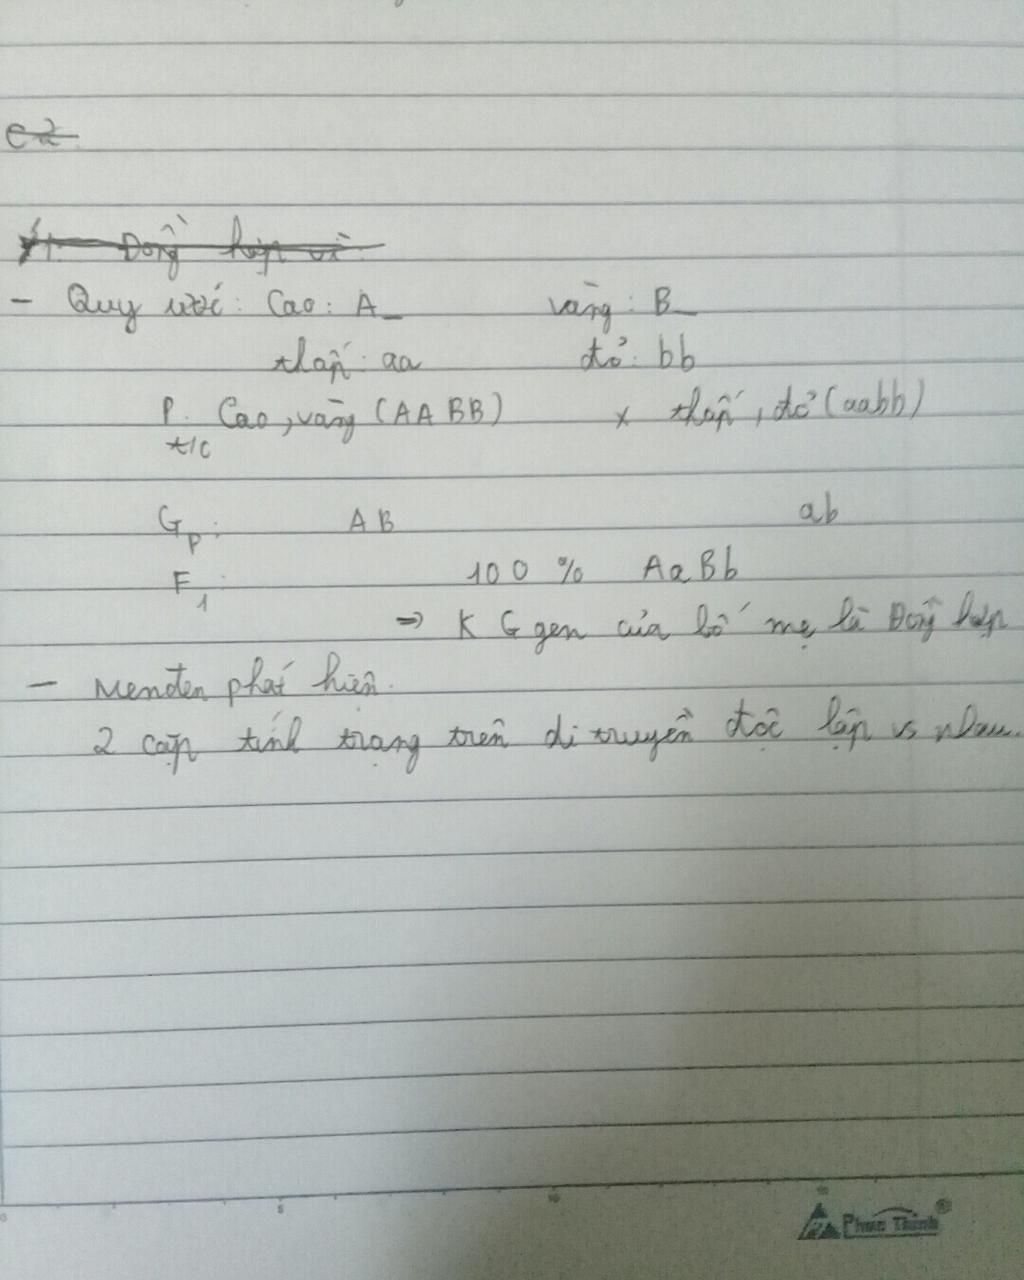 c2
Đồng hợp vì
- Quy ước: Cao: A_ vàng: B_
thấp: aa đỏ: bb
P. Cao, vàng (AABB) x thấp, đỏ (aabb)
t/c
Gp: AB ab
F1: 100 % AaBb
=> KG gen của bố mẹ là Đồng hợp
- Menđen phát hiện.
2 cặp tính trạng trên di truyền độc lập vs nhau.
0 5 10 15
Phúc Thịnh ®